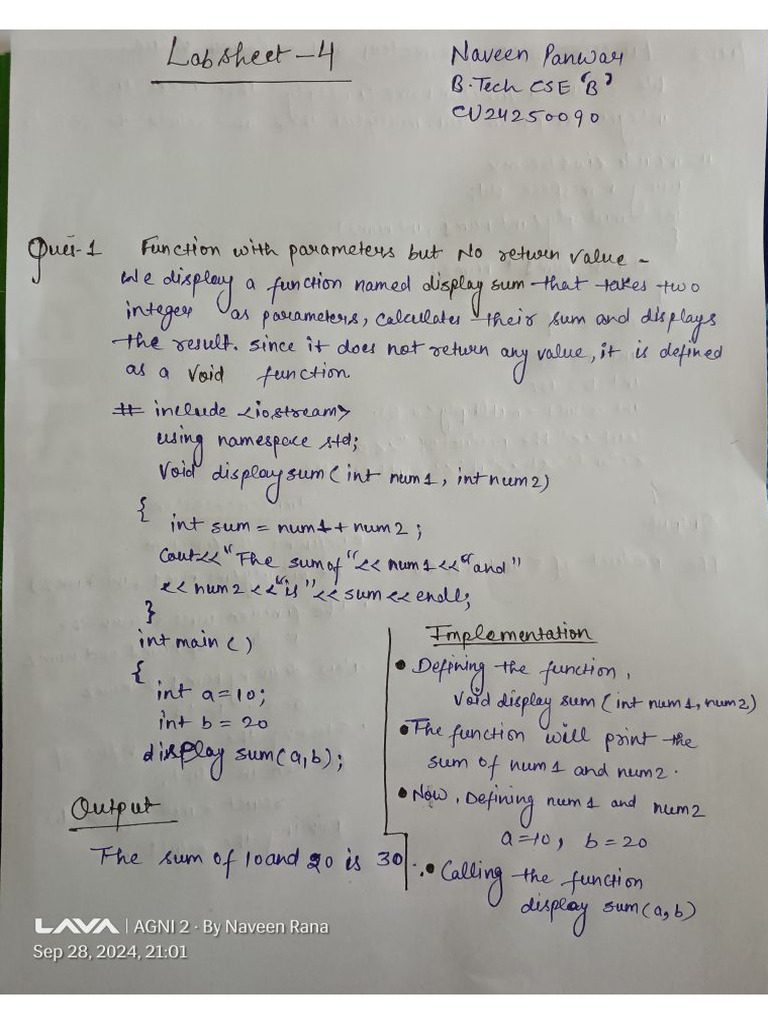 Labsheet-4
Naveen Panwar
B.Tech CSE "B"
CU24250090
Ques-1 Function with parameters but No return value -
We display a function named display sum that takes two
integer as parameters, calculates their sum and displays
the result. since it does not return any value, it is defined
as a void function
# include <iostream>
using namespace std;
Void display sum (int num1, int num2)
{
int sum = num1 + num2 ;
Cout<< "The sum of "<< num1 << "and"
<< num2 << "is" << sum << endl;
}
int main ()
{
int a = 10;
int b = 20
display sum(a,b);
Output
The sum of 10 and 20 is 30
Implementation
• Defining the function,
Void display sum (int num1, num2)
• The function will print the
sum of num1 and num2.
• Now, Defining num1 and num2
a=10, b=20
• Calling the function
display sum(a,b)
LAVA | AGNI 2 · By Naveen Rana
Sep 28, 2024, 21:01